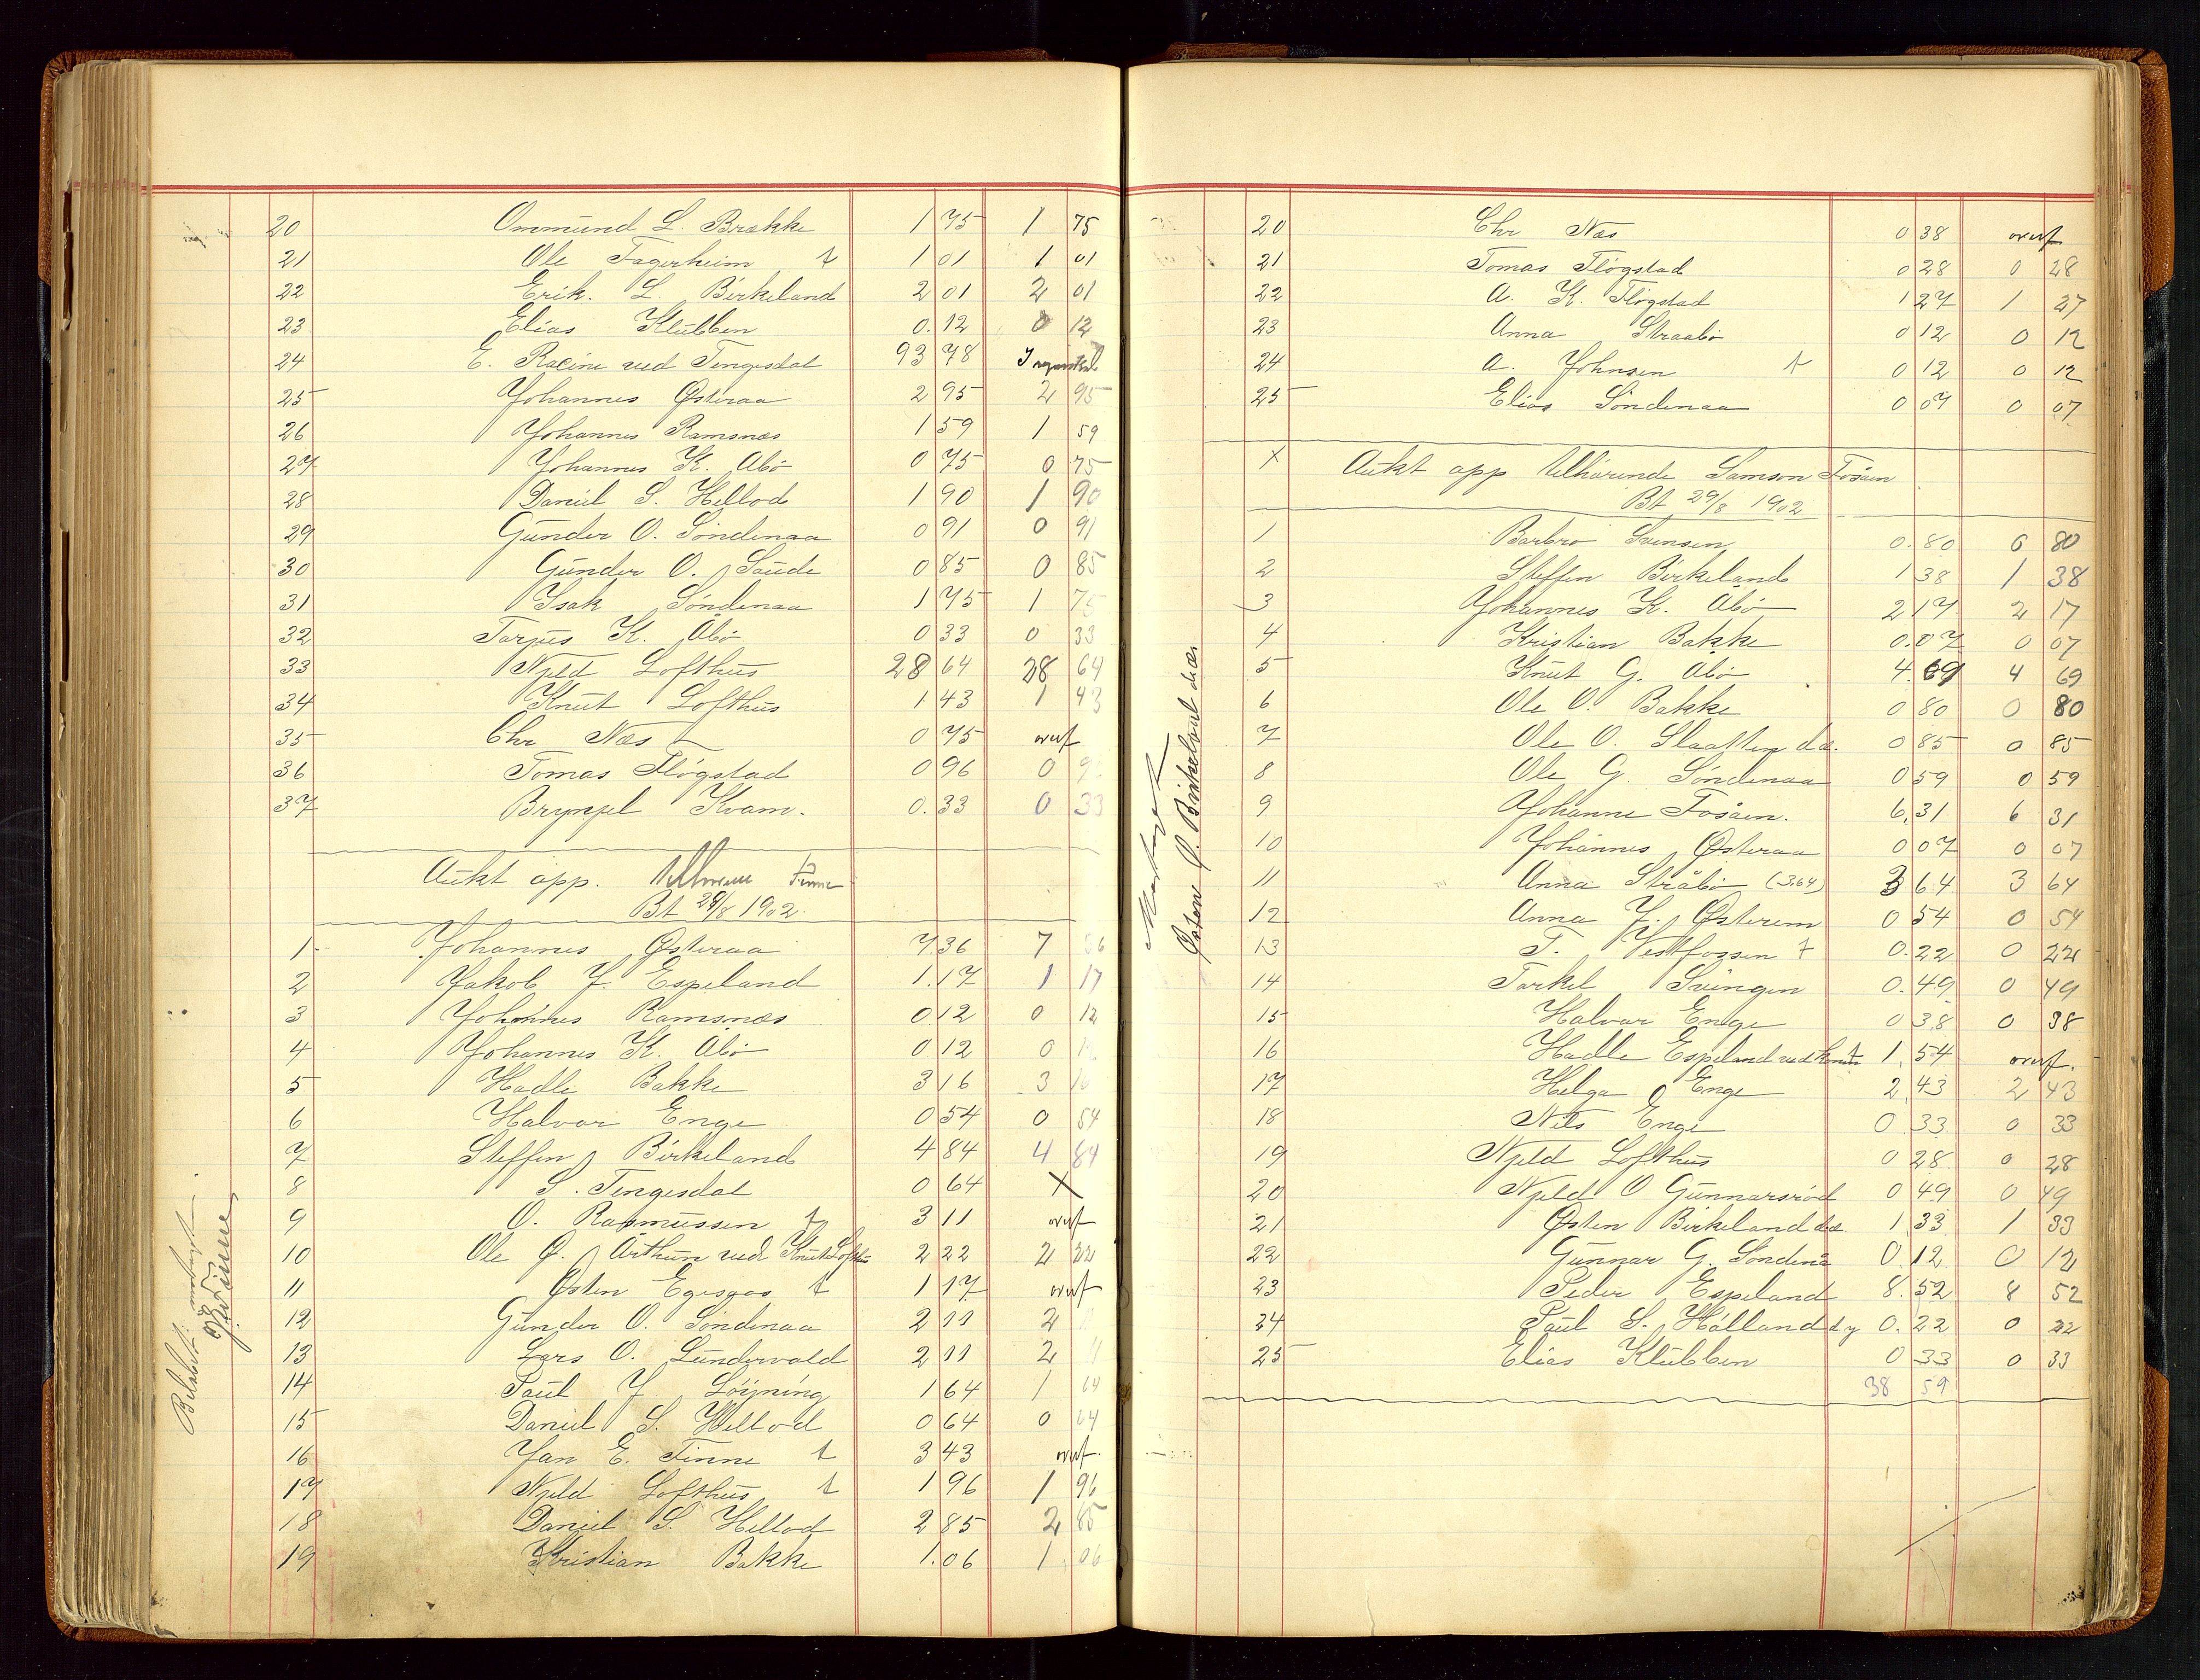 20 Ommund L. Brække 1 75 1 75
21 Ole Fagerheim t 1 01 1 01
22 Erik. L. Birkeland 2 01 2 01
23 Elias Klubben 0. 12 0 12
24 E. Racine ved Tengesdal 93 78
25 Johannes Østeraa 2 95 2 95
26 Johannes Ramsnæs 1 59 1 59
27 Johannes K. Abø 0 75 0 75
28 Daniel S. Hellod 1 90 1 90
29 Gunder O. Søndenaa 0 91 0 91
30 Gunder O. Saude 0 85 0 85
31 Isak Søndenaa 1 75 1 75
32 Tarjus K. Abø 0 33 0 33
33 Njeld Lofthus 28 64 28 64
34 Knut Lofthus 1 43 1 43
35 Chr Næs 0 75 overf
36 Tomas Fløgstad 0 96 0 9
37 Brynjel Kvam. 0. 33 0 33
Aukt opp. Finne
Bt 29/8 1902.
1 Johannes Østeraa 7 36 7 36
2 Jakob J. Espeland 1. 17 1 17
3 Johannes Ramsnæs 0 12 0 12
4 Johannes K. Abø 0 12 0 1
5 Hadle Bakke 3 16 3 16
6 Halvor Enge 0 54 0 54
7 Steffen Birkeland 4 84 4 84
8 S. Tengesdal 0 64 X
9 O. Rasmussen t 3 11 overf
10 Ole Ø. Arthun ved Knut Lofthus 2 22 2 22
11 Østen Egesgas t 1 17 overf
12 Gunder O. Søndenaa 2 11 2
13 Lars O. Lundervold 2 11 2 11
14 Paul J. Løining 1 64 1 64
15 Daniel S. Hellod 0 64 0 64
16 Jan E. Finne t 3 43 overf.
17 Njeld Lofthus t 1 96 1 96
18 Daniel S. Hellod 2 85 2 85
19 Kristian Bakke 1. 06 1 06
Beløbet modtaget
J. E. Finne
20 Chr Næs 0 38 overf
21 Tomas Fløgstad 0 28 0 28
22 A. K. Fløgstad 1 27 1 27
23 Anna Straabø 0 12 0 12
24 A. Johnsen t 0 12 0 12
25 Elias Søndenaa 0 07 0 07
X Aukt opp tilhørende Samson Fosåen
Bt 29/8 1902
1 Barbro Svensen 0. 80 0 80
2 Steffen Birkeland 1 38 1 38
3 Johannes K. Abø 2 17 2 17
4 Kristian Bakke 0. 07 0 07
5 Knut G. Abø 4. 69 4 69
6 Ole O. Bakke 0 80 0 80
7 Ole O. Slaatten d.æ. 0 85 0 85
8 Ole G. Søndenaa 0 59 0 59
9 Johanne Fosåen. 6, 31 6 31
10 Johannes Østeraa 0 07 0 07
11 Anna Stråbø (3.64) 3 64 3 64
12 Anna J. Østerem 0 54 0 54
13 T. Vestfossen t 0. 22 0 22
14 Torkel Svingen 0. 49 0 49
15 Halvar Enge 0 38 0 38
16 Hadle Espeland ved 1. 54 overf.
17 Helga O Enge 2, 43 2 43
18 Nils Enge 0 33 0 33
19 Njeld Lofthus 0 28 0 28
20 Njeld O Gunnarsrød 0 49 0 49
21 Østen Birkeland d.æ. 1 33 1 33
22 Gunnar G. Søndenå 0. 12 0 12
23 Peder Espeland 8. 52 8 52
24 Paul S. Hålland d.y 0. 22 0 22
25 Elias Klubben 0 33 0 33
38 59
Modtaget
Østen Ø. Birkeland d.æ.